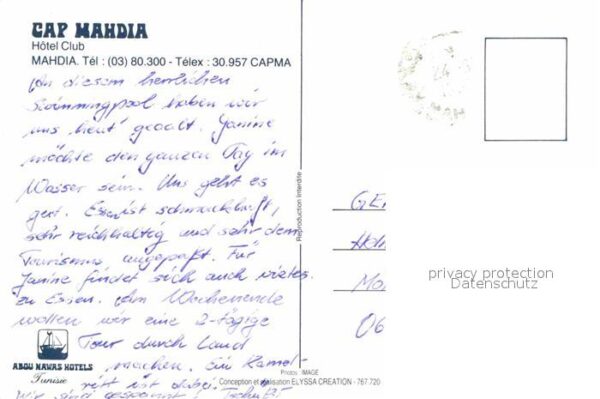 CAP MAHDIA
Hôtel Club
MAHDIA. Tél : (03) 80.300 - Télex : 30.957 CAPMA
An diesem herrlichen
Swimmingpool haben wir
uns heut' geaalt. Janine
möchte den ganzen Tag im
Wasser sein. Uns geht es
gut. Essen ist schmackhaft,
sehr reichhaltig und sehr dem
Tourismus angepaßt. Für
Janine findet sich auch vieles
zu Essen. Am Wochenende
wollen wir eine 2-tägige
Tour durch Land
machen. Ein Kamel-
ritt ist dabei.
Wir sind gespannt! Tschüß!
ABOU NAWAS HOTELS
Tunisie
Reproduction interdite
Photos : IMAGE
Conception et réalisation ELYSSA CREATION - 767.720
GE
Mo
06
privacy protection
Datenschutz